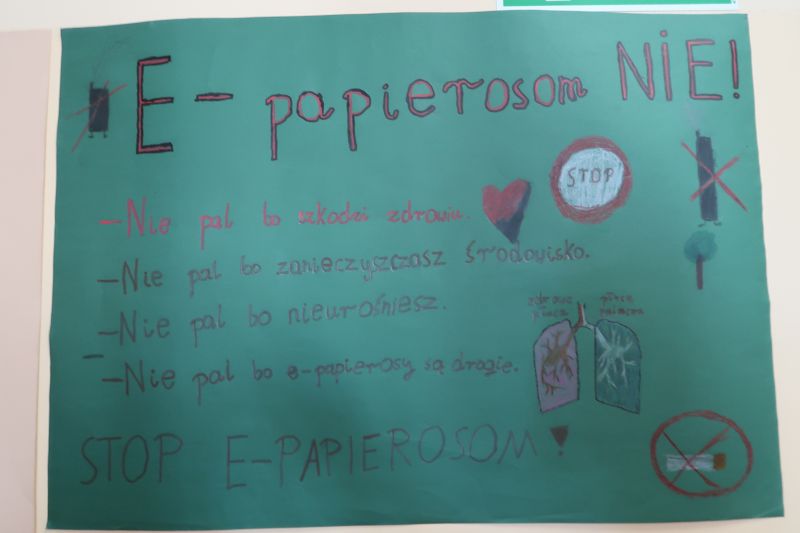 E-papierosom NIE!
STOP
-Nie pal bo szkodzi zdrowiu.
-Nie pal bo zanieczyszczasz środowisko.
-Nie pal bo nieurośniesz.
-Nie pal bo e-papierosy są drogie.
zdrowe płuca
płuca palacza
STOP E-PAPIEROSOM!